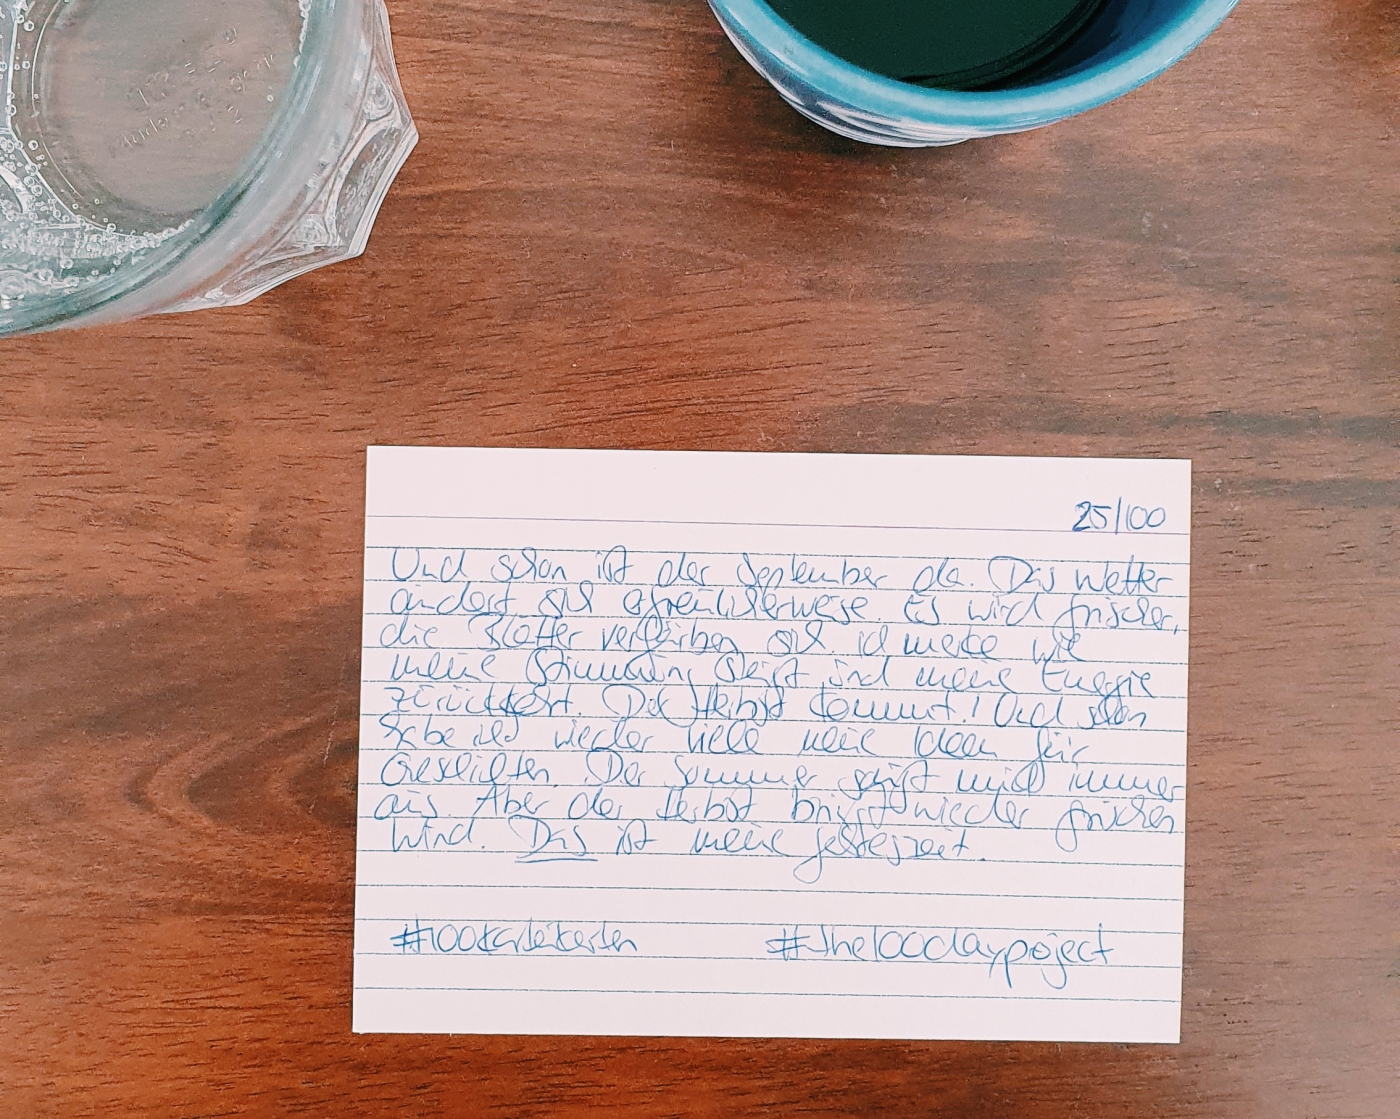 25/100
Und schon ist der September da. Das Wetter
ändert sich erfreulicherweise. Es wird frischer,
die Blätter verfärben sich. Ich merke wie
meine Stimmung steigt und meine Energie
zurückkehrt. Der Herbst kommt! Und schon
habe ich wieder viele neue Ideen für
Geschichten. Der Sommer saugt mich immer
aus. Aber der Herbst bringt wieder frischen
Wind. Das ist meine Jahreszeit.
#100karteikarten #the100dayproject